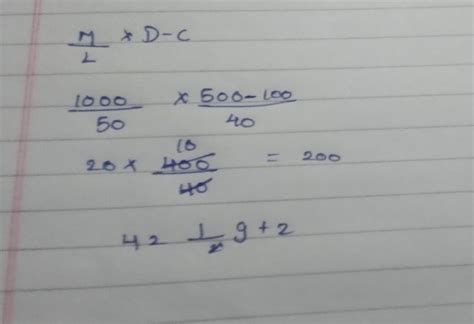 M/L × D-C
1000/50 × 500-100/40
20 × 10 400/40 = 200
42 1/2 g + 2